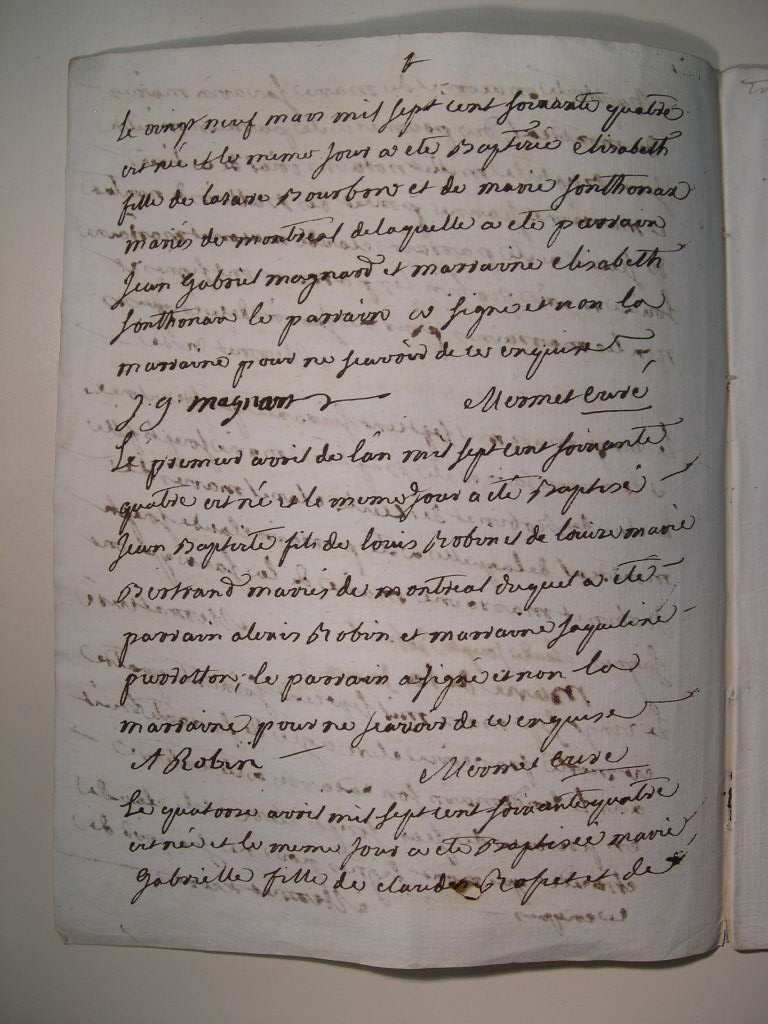 Le vingt neuf mars mil sept cent soixante quatre
est née et le meme jour a eté Baptisée elisabeth
fille de lazare Bourbon et de marie sonthonax
mariés de montreal de laquelle a eté parrain
Jean Gabriel magnard et marraine elisabeth
sonthonax le parrain a signé et non la
marraine pour ne scavoir de ce enquise
J. g magnard Mermet Curé
Le premier avril de l'an mil sept cent soixante
quatre est né et le meme Jour a eté Baptisé
Jean Baptiste fils de louis Robin et de louise marie
Bertrand mariés de montreal duquel a eté
parrain alexis Robin et marraine Jaqueline
perrotton; le parrain a signé et non la
marraine pour ne scavoir de ce enquise
A Robin Mermet Curé
Le quatorse avril mil sept cent soixante quatre
est née et le meme Jour a eté Baptisée marie
Gabrielle fille de claude et de